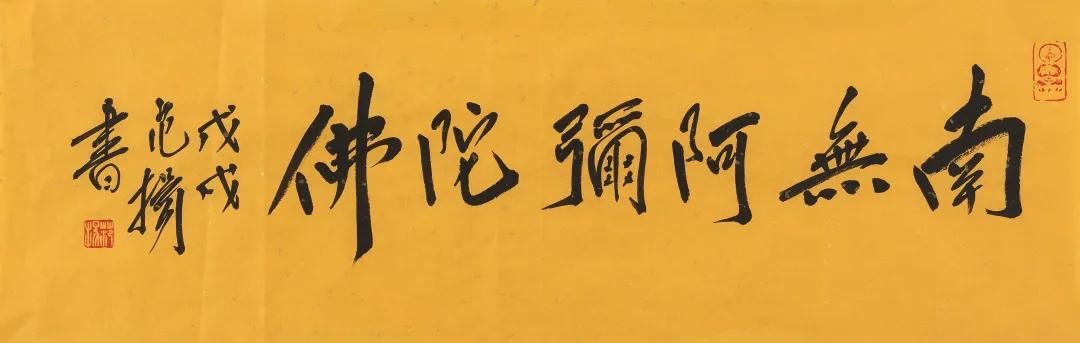 南無阿彌陀佛
戊戌
范揚
書